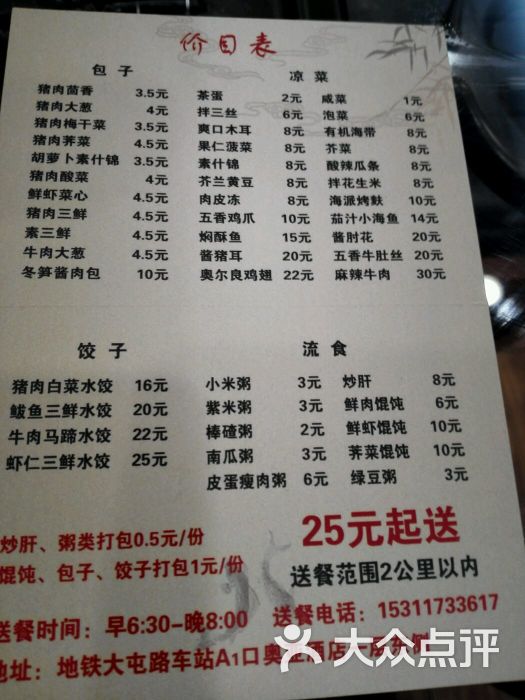 价目表
包子
猪肉茴香 3.5元
猪肉大葱 4元
猪肉梅干菜 3.5元
猪肉荠菜 4.5元
胡萝卜素什锦 3.5元
猪肉酸菜 4元
鲜虾菜心 4.5元
猪肉三鲜 4.5元
素三鲜 4.5元
牛肉大葱 4.5元
冬笋酱肉包 10元
凉菜
茶蛋 2元 咸菜 1元
拌三丝 6元 泡菜 6元
爽口木耳 8元 有机海带 8元
果仁菠菜 8元 芥菜 8元
素什锦 8元 酸辣瓜条 8元
芥兰黄豆 8元 拌花生米 8元
肉皮冻 8元 海派烤麸 10元
五香鸡爪 10元 茄汁小海鱼 14元
焖酥鱼 15元 酱肘花 20元
酱猪耳 20元 五香牛肚丝 20元
奥尔良鸡翅 22元 麻辣牛肉 30元
饺子
猪肉白菜水饺 16元
鲅鱼三鲜水饺 20元
牛肉马蹄水饺 22元
虾仁三鲜水饺 25元
流食
小米粥 3元 炒肝 8元
紫米粥 3元 鲜肉馄饨 6元
棒碴粥 2元 鲜虾馄饨 10元
南瓜粥 3元 荠菜馄饨 10元
皮蛋瘦肉粥 6元 绿豆粥 3元
炒肝、粥类打包0.5元/份
馄饨、包子、饺子打包1元/份
25元起送
送餐范围2公里以内
送餐时间：早6:30-晚8:00 送餐电话：15311733617
地址：地铁大屯路车站A1口奥亚酒店
大众点评